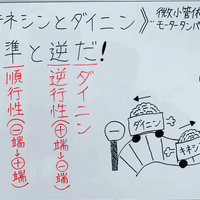 キネシンとダイニン》
微小管依
モータータンパ
準と逆だ!
ダイニン
逆行性(⊕端→⊖端)
順行性(⊖端→⊕端)
ダイニン
キネシ